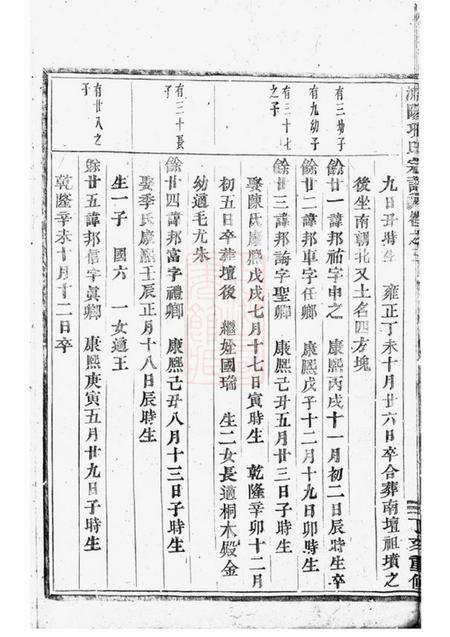 宗譜卷之二
九日丑時生　雍正丁未十月廿六日卒合葬南壇祖墳之
後坐南朝北又土名四方塊
有三幼子
餘廿一諱邦祐字申之　康熙丙戌十一月初二日辰時生卒
有九幼子
餘廿二諱邦車字任卿　康熙戊子十二月十九日卯時生
有三十七之子
餘廿三諱邦論字聖卿　康熙己丑五月廿三日子時生
娶陳氏康熙戊戌七月十七日寅時生　乾隆辛卯十二月
初五日卒葬壇後　繼姪國瑞　生二女長適桐木殿金
幼適毛尤朱
有三十長子
餘廿四諱邦富字禮卿　康熙己丑八月十三日子時生
娶季氏康熙壬辰正月十八日辰時生
生一子　國六　一女適王
有廿八之子
餘廿五諱邦信字眞卿　康熙庚寅五月廿九日子時生
乾隆辛未十月廿二日卒
丁亥重修